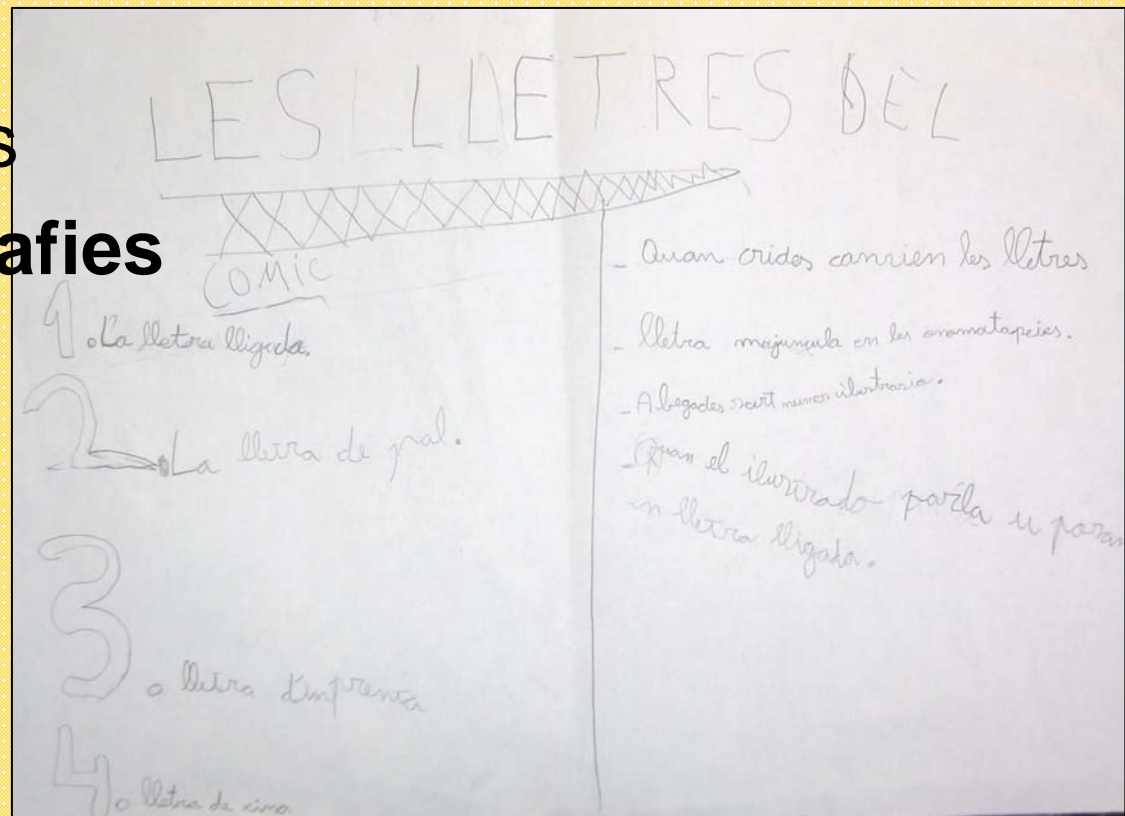 s
afies
LES LLETRES DEL
COMIC
1. La lletra lligada.
2. La lletra de pal.
3. lletra d'imprenta
4. lletra de
- Quan crides canvien les lletres
- lletra majuncula en les onomatapeies.
- A begades sout numes
- Quan el ilustrado parla u posan
en lletra lligada.